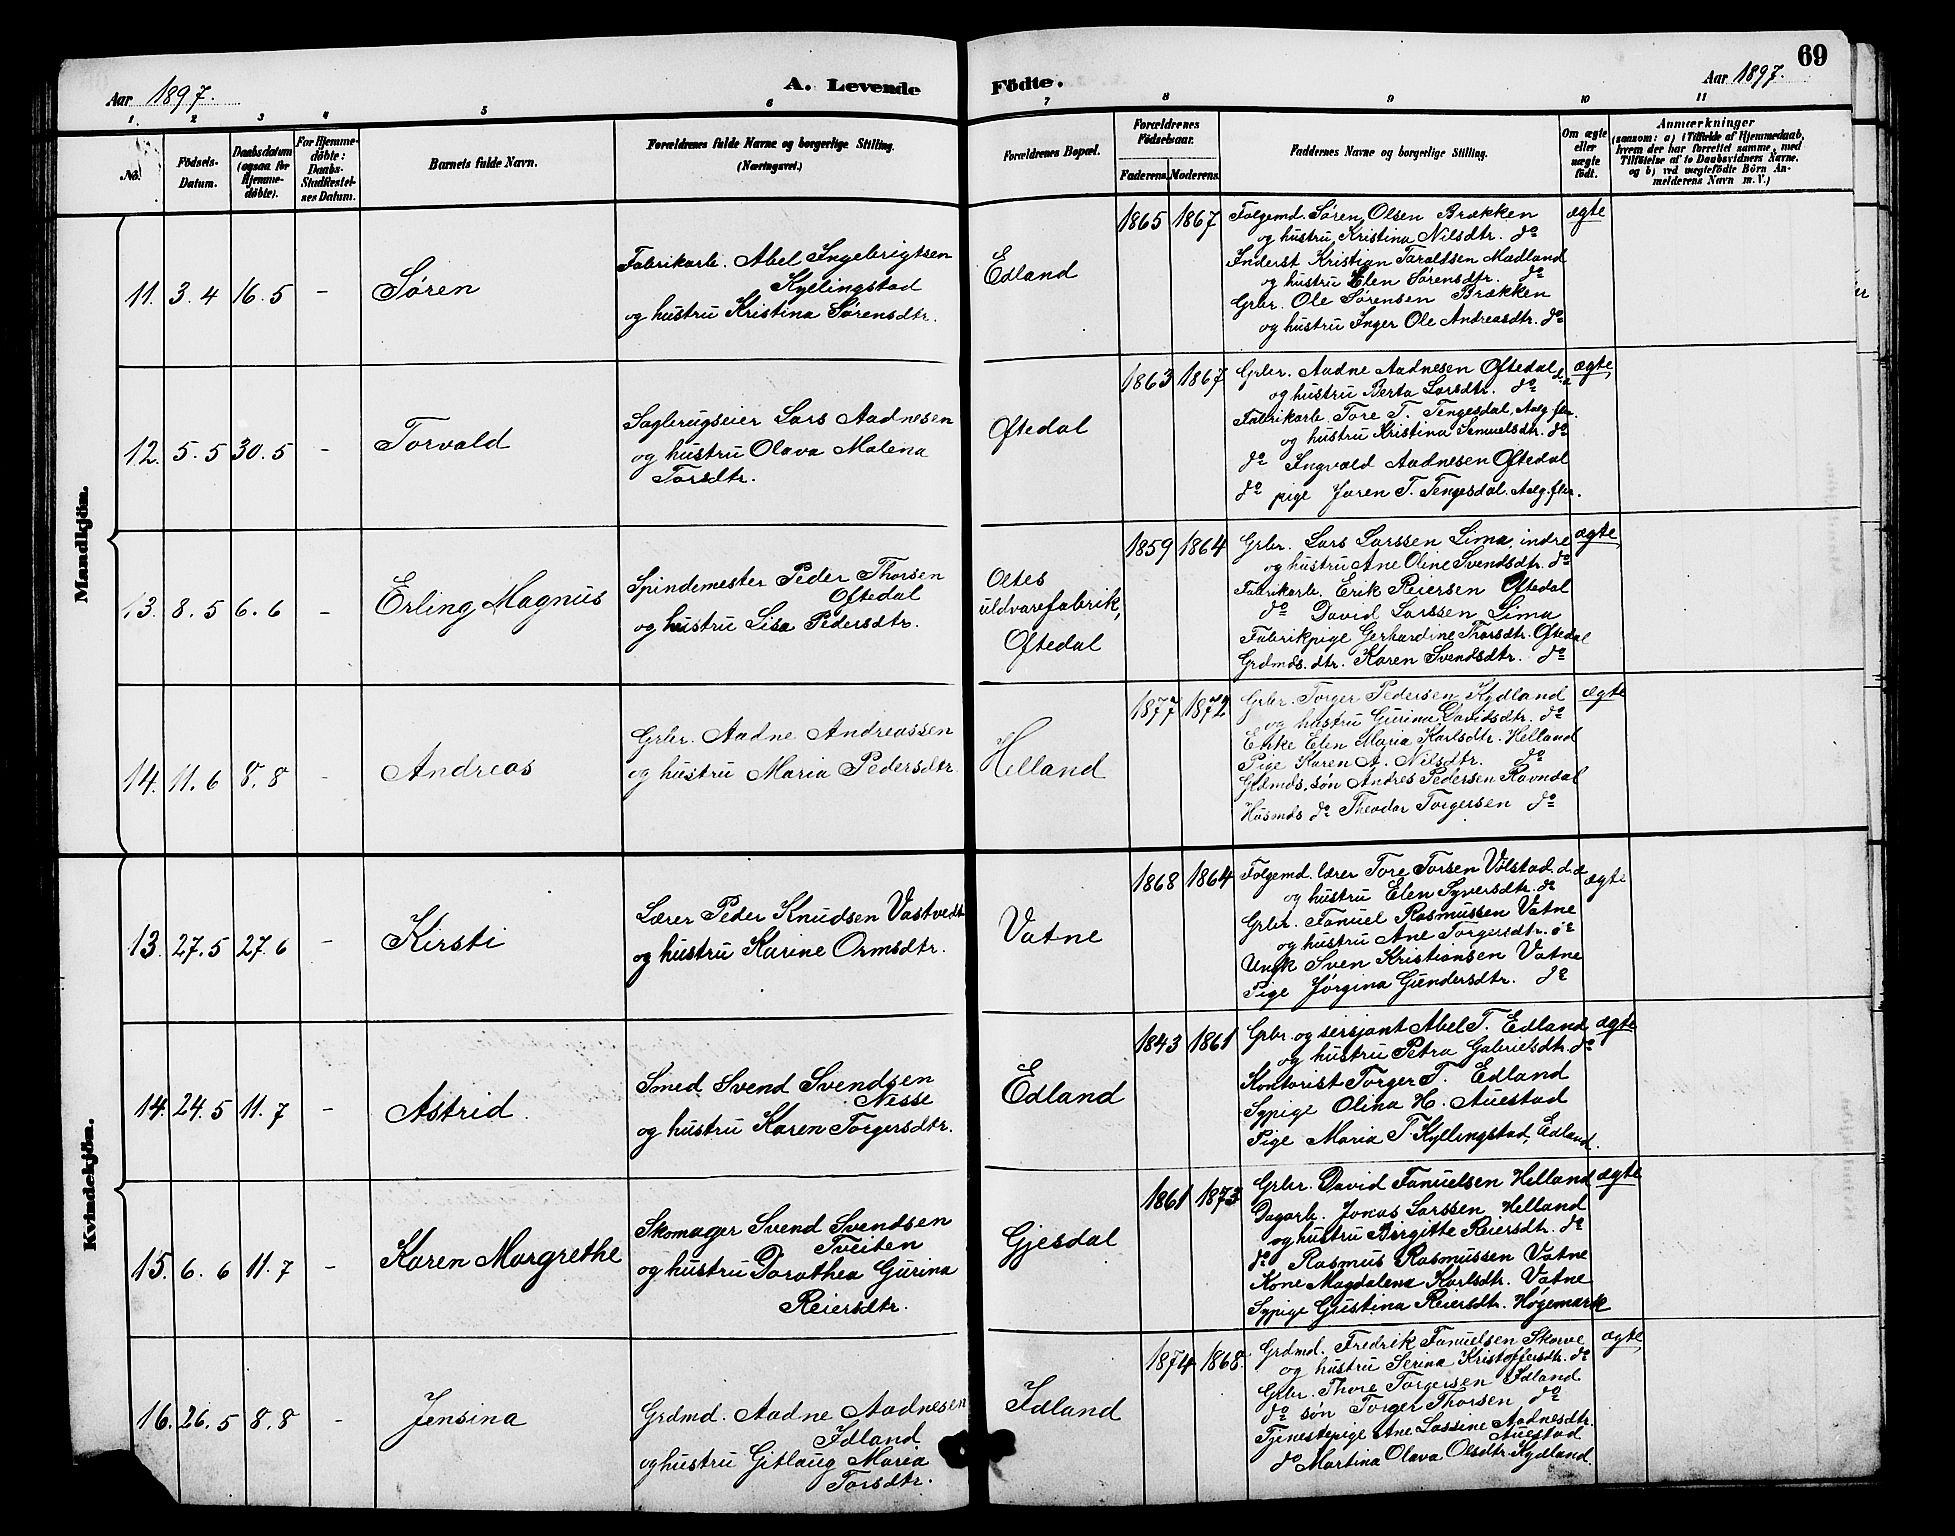 69
Aar 1897.
A. Levende
Födte.
Aar 1897.
1. 2 3 4 5 6 7 8 9 10 11
No.
Födsels-Datum.
Daabsdatum (ogsaa for Hjemme-döbte).
For Hjemme-döbte: Daabs-Stadfæstel-ses Datum.
Barnets fulde Navn.
Forældrenes fulde Navne og borgerlige Stilling. (Næringsvei.)
Forældrenes Bopæl.
Forældrenes Födselsaar.
Faderens. Moderens.
Faddernes Navne og borgerlige Stilling.
Om ægte eller uægte födt.
Anmærkninger
(saasom: a) i Tilfælde af Hjemmedaab,
hvem der har forrettet samme, med
Tilföielse af to Daabsvidners Navne,
og b) ved uægtefödte Börn An-
melderens Navn m. V.)
Mandkjön.
11. 3.4 16.5 - Søren
Fabrikarb. Abel Ingebrigtsen
Kyllingstad
og hustru Kristina Sørensdtr.
Edland
1865 1867
Følgemd. Søren Olsen Brækken
og hustru Kristina Nilsdtr. do
Inderst Kristian Taraldsen Madland
og hustru Elen Sørensdtr. do
Grbr. Ole Sørensen Brækken
og hustru Inger Ole Andreasdtr. do
ægte
12. 5.5 30.5 - Torvald
Sagbrugseier Lars Aadnesen
og hustru Olava Malena
Torsdtr.
Oftedal
1863 1867
Grbr. Aadne Aadnesen Oftedal
og hustru Berta Larsdtr. do
Fabrikarb. Tore T. Tengesdal, Aalg.fbr.
og hustru Kristina Samuelsdtr. do
do Ingvald Aadnesen Oftedal
do pige Joren T. Tengesdal. Aalg.fbr.
ægte
13. 8.5 6.6 - Erling Magnus
Spindemester Peder Thorsen
Oftedal
og hustru Lisa Pedersdtr.
Oltes
uldvarefabrik,
Oftedal
1859 1864
Grbr. Lars Larssen Lima indre
og hustru Ane Oline Svendsdtr. do
Fabrikarb. Erik Reiersen Oftedal
do David Larssen Lima
Fabrikpige Gerhardine Thorsdtr. Oftedal
Grdmds. dtr. Karen Svendsdtr. do
ægte
14. 11.6 8.8 - Andreas
Grbr. Aadne Andreassen
og hustru Maria Pedersdtr.
Helland
1877 1872
Grbr. Torger Pedersen Kydland
og hustru Gurina Davidsdtr. do
Enke Elen Maria Karlsdtr. Helland
Pige Karen A. Nilsdtr. do
Grdmds. søn Andres Pedersen Ravndal
Husmds do Theodor Torgersen do
ægte
Kvindekjön.
13. 27.5 27.6 - Kirsti
Lærer Peder Knudsen Vastvedt
og hustru Karine Ormsdtr.
Vatne
1868 1864
Følgemd. lærer Tore Torsen Vølstad
og hustru Elen Syversdtr. do
Grbr. Fanuel Rasmussen Vatne
og hustru Ane Torgersdtr. do
Ungk Sven Kristiansen Vatne
Pige Jørgina Gundersdtr. do
ægte
14. 24.5 11.7 - Astrid.
Smed Svend Svendsen
Nesse
og hustru Karen Torgersdtr.
Edland
1843 1861
Grbr. og sersjant Abel T. Edland
og hustru Petra Gabrielsdtr. do
Kontorist Torger T. Edland
Sypige Olina H. Auestad
Pige Maria T. Kyllingstad, Edland.
ægte
15. 6.6 11.7 - Karen Margrethe
Skomager Svend Svendsen
Tveiten
og hustru Dorothea Gurina
Reiersdtr.
Gjesdal
1861 1873
Grbr. David Fanuelsen Helland
Dagarb. Jonas Larssen Helland
og hustru Birgitte Reiersdtr. do
do Rasmus Rasmussen Vatne
Kone Magdalena Karlsdtr. Vatne
Sypige Gustina Reiersdtr. Høgemark
ægte
16. 26.5 8.8 - Jensina
Grdmd. Aadne Aadnesen
Idland
og hustru Gitlaug Maria
Torsdtr.
Idland
1874 1868.
Grdmd. Fredrik Fanuelsen Skorve
og hustru Serina Kristoffersdtr. do
Grbr. Thore Torgersen Idland
do søn Torger Thorsen do
Tjenestepige Ane Lassine Aadnesdtr.
Auestad
do Martina Olava Olsdtr. Kydland.
ægte